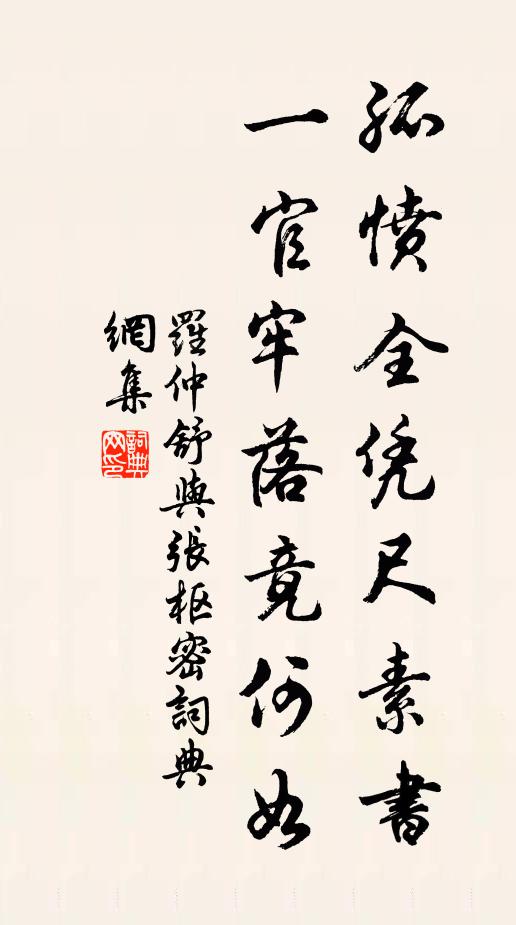 孤憤全凭尺素書
一官牢落竟何如
羅仲舒與張枢密詞典
網集
詞典
网印